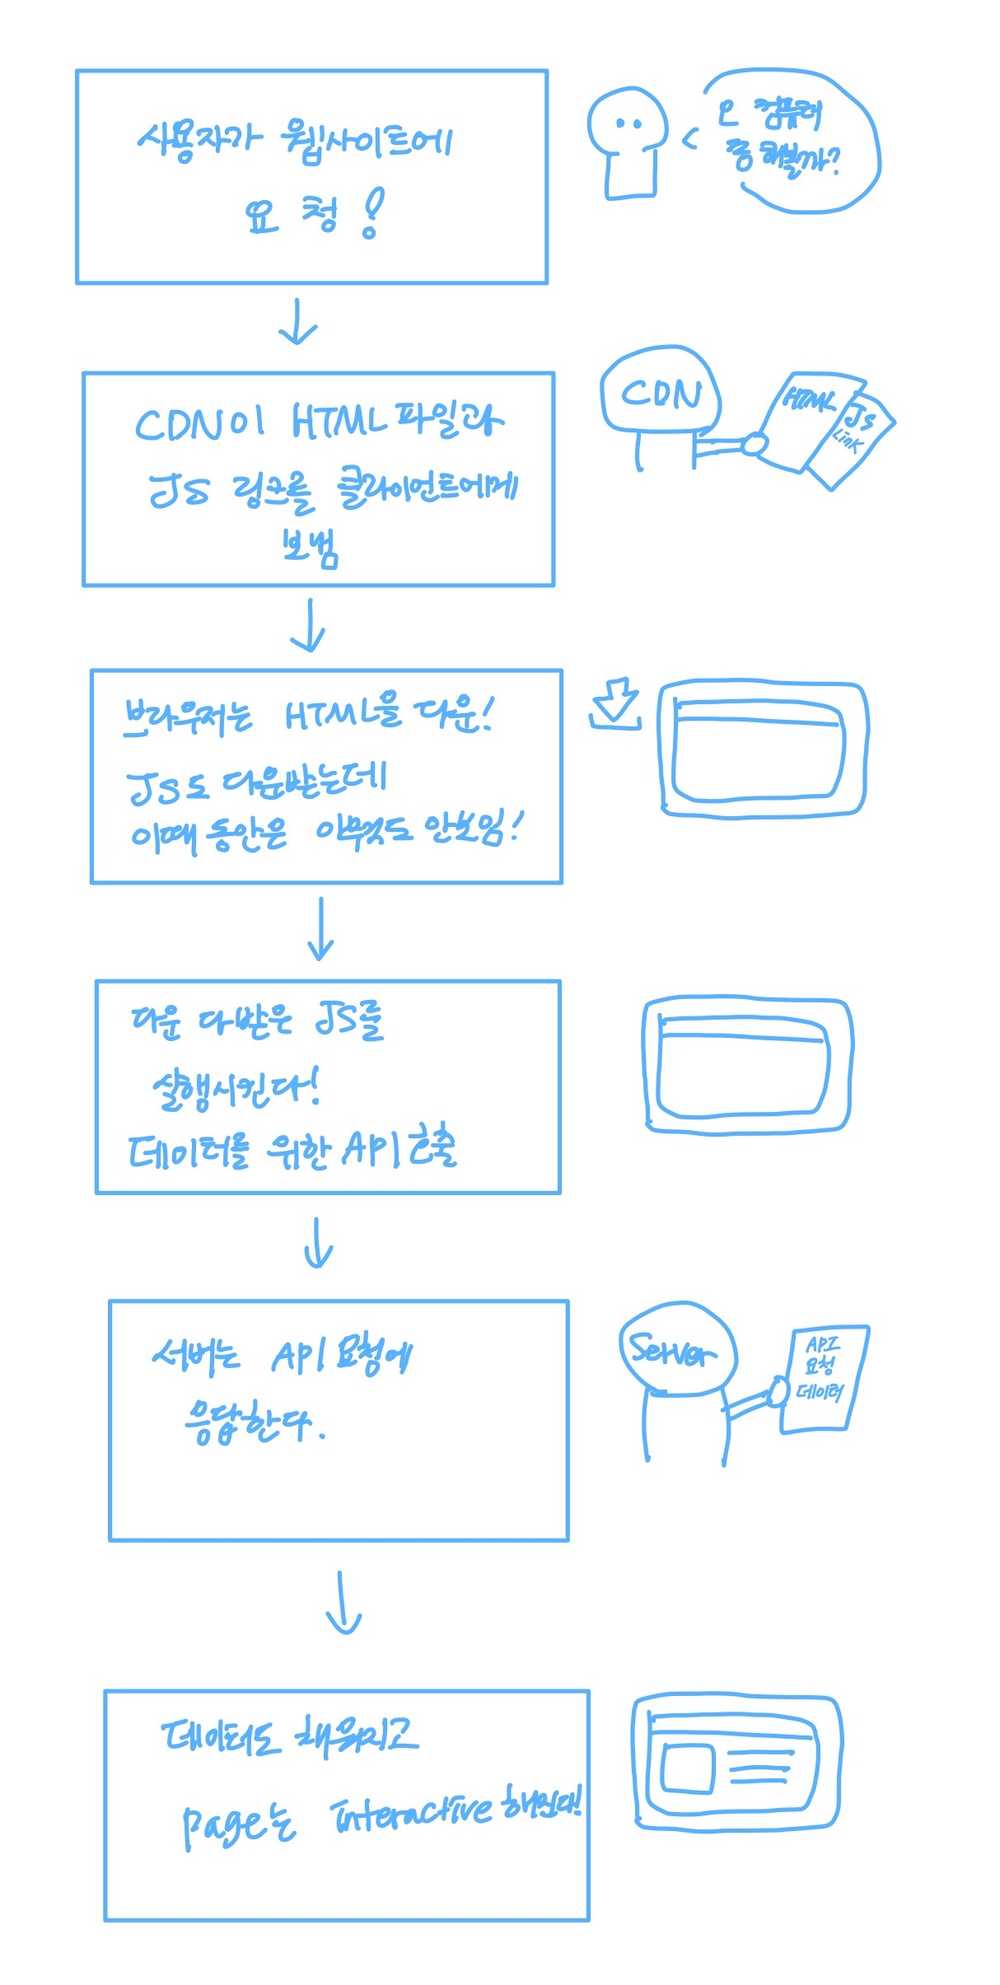 사용자가 웹사이트에
요청!
오 컴퓨터
좀 해볼까?
CDN이 HTML 파일과
JS 링크를 클라이언트에게
보냄
CDN
HTML
JS
Link
브라우저는 HTML을 다운!
JS도 다운받는데
이때 동안은 아무것도 안보임!
다운 다받은 JS를
실행시킨다!
데이터를 위한 API 호출
서버는 API 요청에
응답한다.
Server
API
요청
데이터
데이터도 채워지고
page는 interactive 해진다!